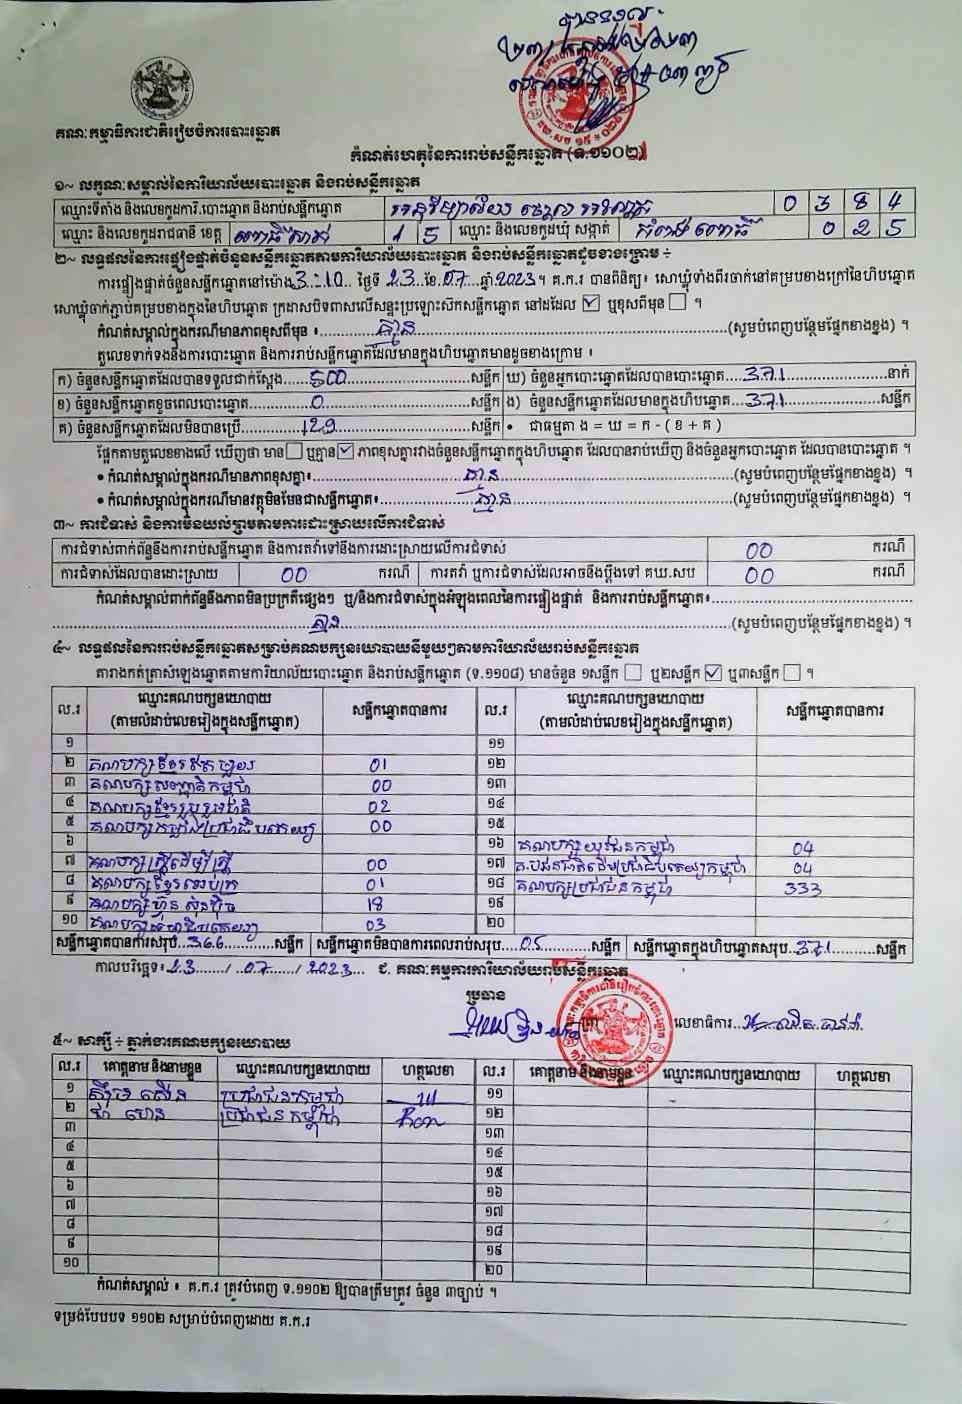 បានទទួល
គណៈកម្មាធិការជាតិរៀបចំការបោះឆ្នោត
កំណត់ហេតុនៃការរាប់សន្លឹកឆ្នោត (ទ.១១០២)
១~ លក្ខណៈសម្គាល់នៃការិយាល័យបោះឆ្នោត និងរាប់សន្លឹកឆ្នោត
ឈ្មោះទីតាំង និងលេខកូដការិ.បោះឆ្នោត និងរាប់សន្លឹកឆ្នោត អនុវិទ្យាល័យ 0 3 8 4
ឈ្មោះ និងលេខកូដរាជធានី ខេត្ត ពោធិ៍សាត់ 1 5 ឈ្មោះ និងលេខកូដឃុំ សង្កាត់ កំពង់ពោធិ៍ 0 2 5
២~ លទ្ធផលនៃការផ្ទៀងផ្ទាត់ចំនួនសន្លឹកឆ្នោតតាមការិយាល័យបោះឆ្នោត និងរាប់សន្លឹកឆ្នោតដូចខាងក្រោម ÷
ការផ្ទៀងផ្ទាត់ចំនួនសន្លឹកឆ្នោតនៅម៉ោង 3:10 ថ្ងៃទី 23 ខែ 07 ឆ្នាំ 2023 ។ គ.ក.រ បានពិនិត្យ៖ សោឃ្លុំទាំងពីរចាក់នៅគម្របខាងក្រៅនៃហិបឆ្នោត
សោឃ្លុំចាក់ភ្ជាប់គម្របខាងក្នុងនៃហិបឆ្នោត ក្រដាសបិទពាសលើសន្ទះប្រឡោះស៊កសន្លឹកឆ្នោត នៅដដែល ☑ ឬខុសពីមុន ☐ ។
កំណត់សម្គាល់ក្នុងករណីមានភាពខុសពីមុន ៖ គ្មាន (សូមបំពេញបន្ថែមផ្នែកខាងខ្នង) ។
តួលេខទាក់ទងនឹងការបោះឆ្នោត និងការរាប់សន្លឹកឆ្នោតដែលមានក្នុងហិបឆ្នោតមានដូចខាងក្រោម ៖
ក) ចំនួនសន្លឹកឆ្នោតដែលបានទទួលជាក់ស្តែង 500 សន្លឹក ឃ) ចំនួនអ្នកបោះឆ្នោតដែលបានបោះឆ្នោត 371 នាក់
ខ) ចំនួនសន្លឹកឆ្នោតខូចពេលបោះឆ្នោត 0 សន្លឹក ង) ចំនួនសន្លឹកឆ្នោតដែលមានក្នុងហិបឆ្នោត 371 សន្លឹក
គ) ចំនួនសន្លឹកឆ្នោតដែលមិនបានប្រើ 129 សន្លឹក • ជាធម្មតា ង = ឃ = ក - ( ខ + គ )
ផ្អែកតាមតួលេខខាងលើ ឃើញថា មាន ☐ ឬគ្មាន ☑ ភាពខុសគ្នារវាងចំនួនសន្លឹកឆ្នោតក្នុងហិបឆ្នោត ដែលបានរាប់ឃើញ និងចំនួនអ្នកបោះឆ្នោត ដែលបានបោះឆ្នោត ។
• កំណត់សម្គាល់ក្នុងករណីមានភាពខុសគ្នា៖ គ្មាន (សូមបំពេញបន្ថែមផ្នែកខាងខ្នង) ។
• កំណត់សម្គាល់ក្នុងករណីមានវត្ថុមិនមែនជាសន្លឹកឆ្នោត៖ គ្មាន (សូមបំពេញបន្ថែមផ្នែកខាងខ្នង) ។
៣~ ការជំទាស់ និងការមិនយល់ព្រមតាមការដោះស្រាយលើការជំទាស់
ការជំទាស់ពាក់ព័ន្ធនឹងការរាប់សន្លឹកឆ្នោត និងការតវ៉ាទៅនឹងការដោះស្រាយលើការជំទាស់ 00 ករណី
ការជំទាស់ដែលបានដោះស្រាយ 00 ករណី ការតវ៉ា ឬការជំទាស់ដែលអាចនឹងប្តឹងទៅ គឃ.សប 00 ករណី
កំណត់សម្គាល់ពាក់ព័ន្ធនឹងភាពមិនប្រក្រតីផ្សេងៗ ឬ/និងការជំទាស់ក្នុងអំឡុងពេលនៃការផ្ទៀងផ្ទាត់ និងការរាប់សន្លឹកឆ្នោត៖
គ្មាន (សូមបំពេញបន្ថែមផ្នែកខាងខ្នង) ។
៤~ លទ្ធផលនៃការរាប់សន្លឹកឆ្នោតសម្រាប់គណបក្សនយោបាយនីមួយៗតាមការិយាល័យរាប់សន្លឹកឆ្នោត
តារាងកត់ត្រាសំឡេងឆ្នោតតាមការិយាល័យបោះឆ្នោត និងរាប់សន្លឹកឆ្នោត (ទ.១១០៨) មានចំនួន ១សន្លឹក ☐ ឬ២សន្លឹក ☑ ឬ៣សន្លឹក ☐ ។
ល.រ ឈ្មោះគណបក្សនយោបាយ (តាមលំដាប់លេខរៀងក្នុងសន្លឹកឆ្នោត) សន្លឹកឆ្នោតបានការ ល.រ ឈ្មោះគណបក្សនយោបាយ (តាមលំដាប់លេខរៀងក្នុងសន្លឹកឆ្នោត) សន្លឹកឆ្នោតបានការ
១ ១១
២ គណបក្សខ្មែរ 01 ១២
៣ គណបក្សសញ្ជាតិកម្ពុជា 00 ១៣
៤ គណបក្សខ្មែររួបរួមជាតិ 02 ១៤
៥ គណបក្សកម្លាំងប្រជាធិបតេយ្យ 00 ១៥
៦ ១៦ គណបក្សយុវជនកម្ពុជា 04
៧ គណបក្សស្ត្រីដើម្បីស្ត្រី 00 ១៧ គ.បជនជាតិដើមប្រជាធិបតេយ្យកម្ពុជា 04
៨ គណបក្សខ្មែរ 01 ១៨ គណបក្សប្រជាជនកម្ពុជា 333
៩ គណបក្សហ៊្វុនស៊ិនប៉ិច 18 ១៩
១០ គណបក្ស 03 ២០
សន្លឹកឆ្នោតបានការសរុប 366 សន្លឹក សន្លឹកឆ្នោតមិនបានការពេលរាប់សរុប 05 សន្លឹក សន្លឹកឆ្នោតក្នុងហិបឆ្នោតសរុប 371 សន្លឹក
កាលបរិច្ឆេទ៖ 23 / 07 / 2023 ជ. គណៈកម្មការការិយាល័យរាប់សន្លឹកឆ្នោត
ប្រធាន
លេខាធិការ
៥~ សាក្សី ÷ ភ្នាក់ងារគណបក្សនយោបាយ
ល.រ គោត្តនាម និងនាមខ្លួន ឈ្មោះគណបក្សនយោបាយ ហត្ថលេខា ល.រ គោត្តនាម និងនាមខ្លួន ឈ្មោះគណបក្សនយោបាយ ហត្ថលេខា
១ ប្រជាជនកម្ពុជា ១១
២ ប្រជាជនកម្ពុជា ១២
៣ ១៣
៤ ១៤
៥ ១៥
៦ ១៦
៧ ១៧
៨ ១៨
៩ ១៩
១០ ២០
កំណត់សម្គាល់ ៖ គ.ក.រ ត្រូវបំពេញ ទ.១១០២ ឱ្យបានត្រឹមត្រូវ ចំនួន ៣ច្បាប់ ។
ទម្រង់បែបបទ ១១០២ សម្រាប់បំពេញដោយ គ.ក.រ